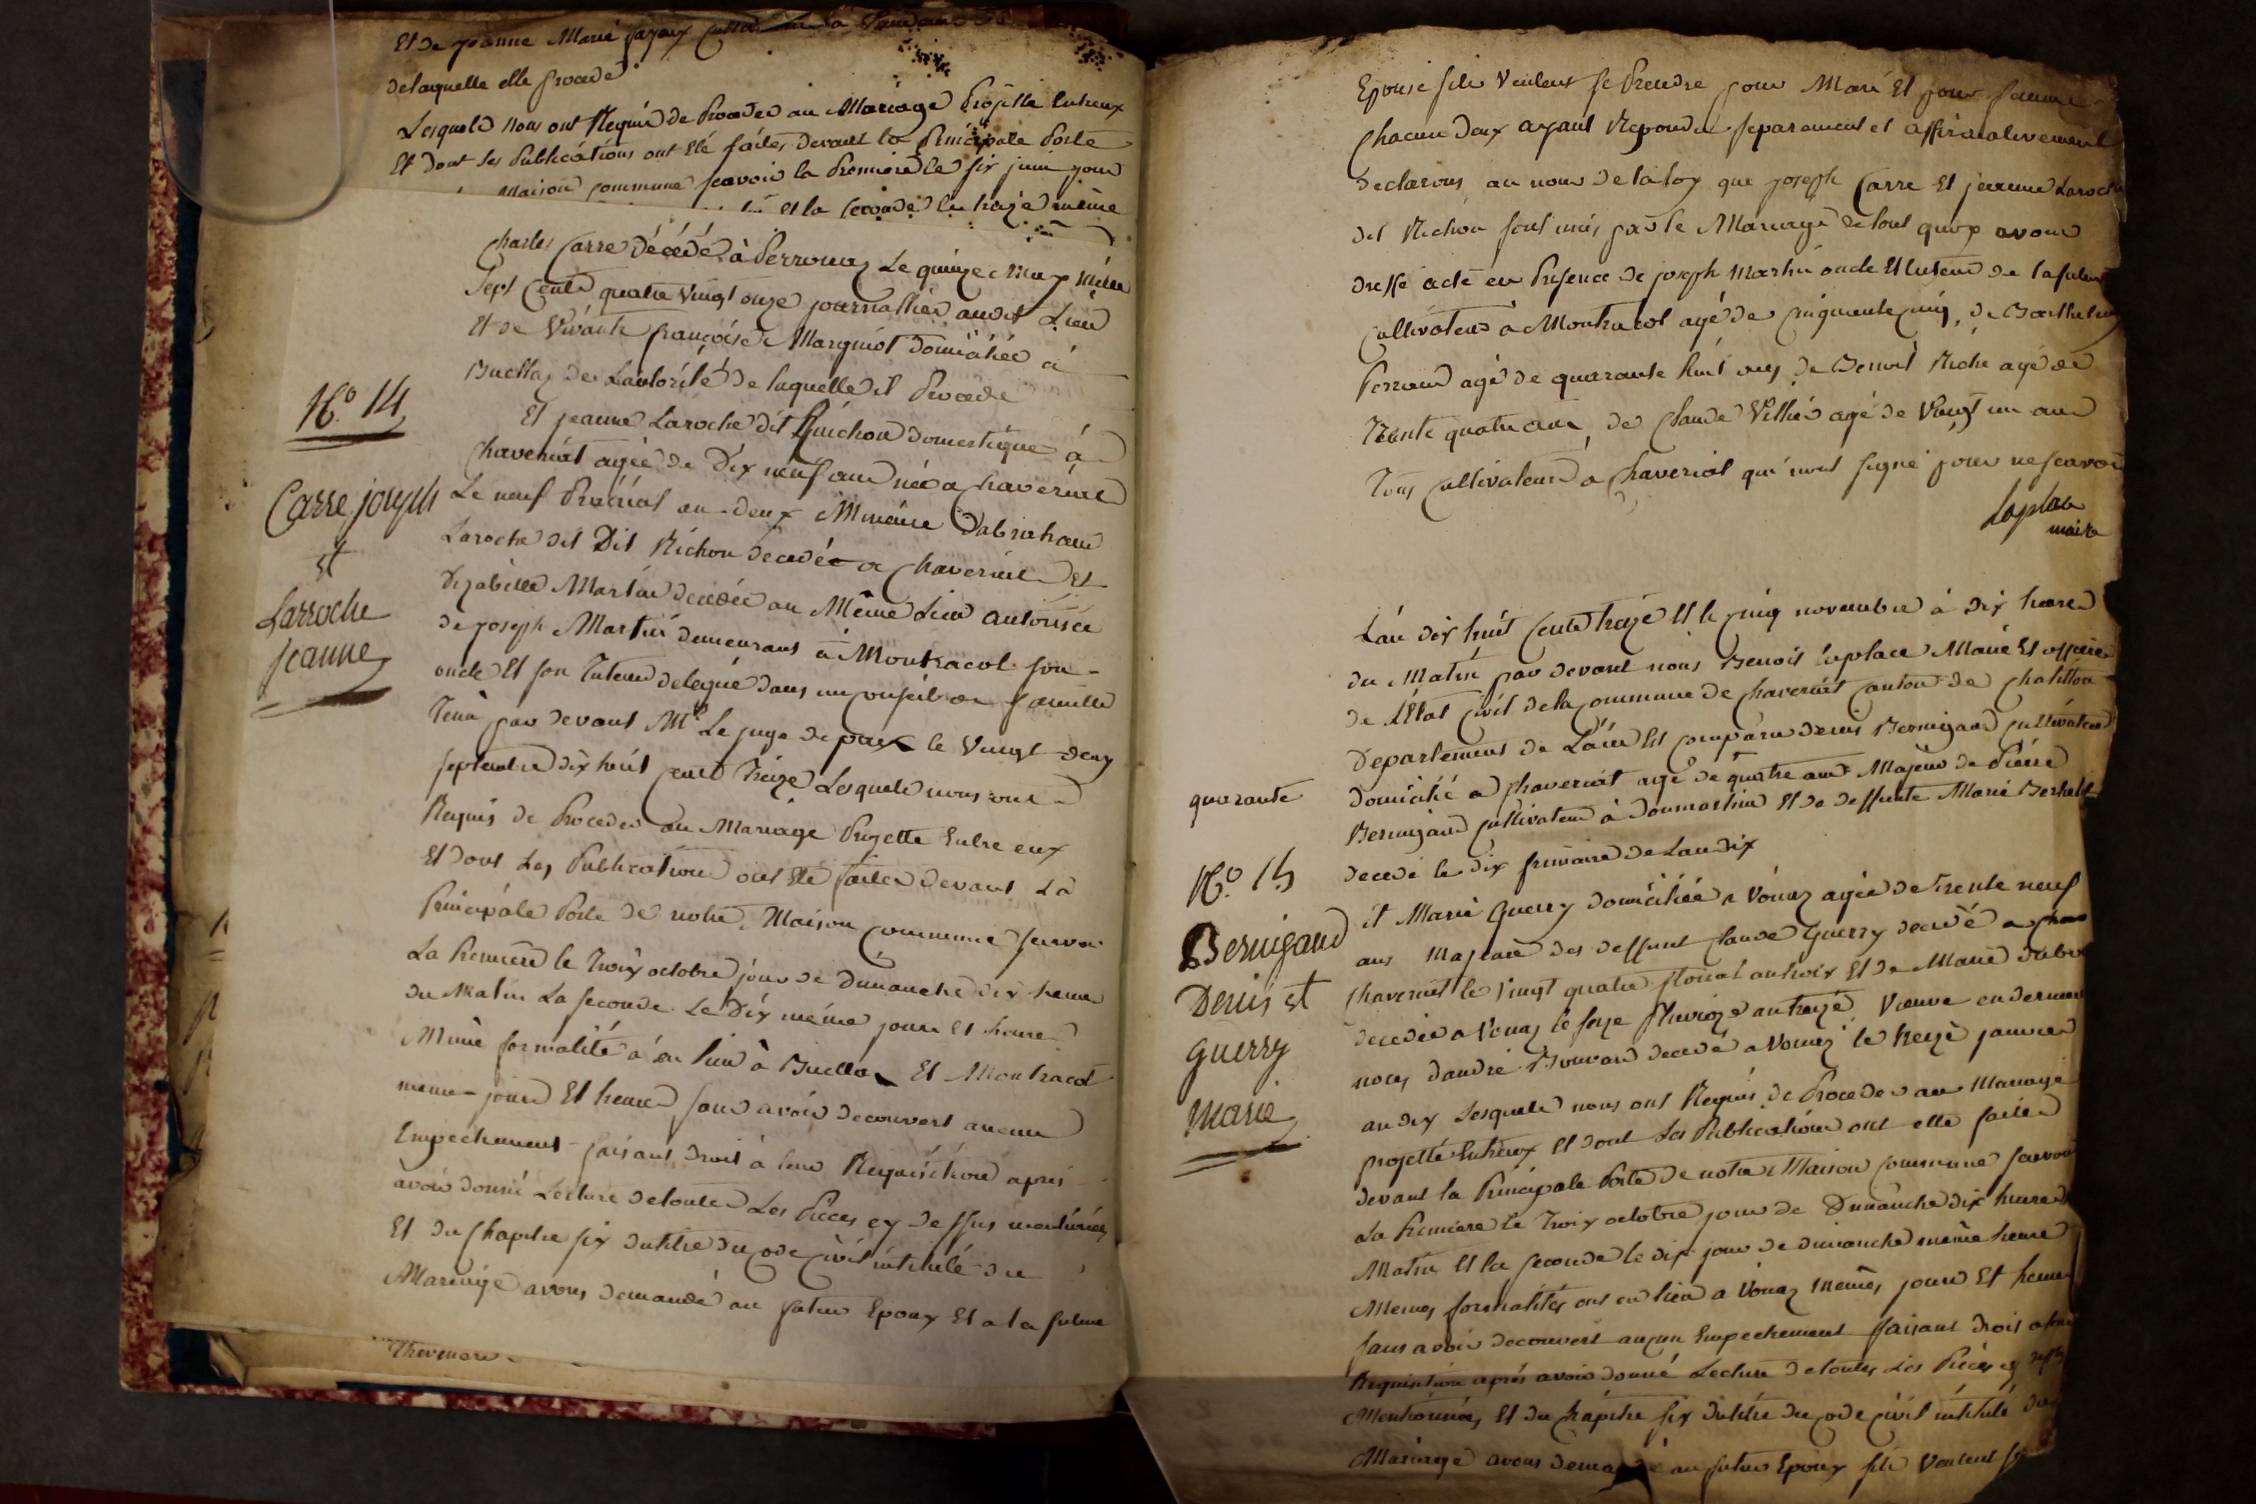 Et de jeanne Marie
de laquelle elle procede
Lesquels nous ont Requis de Proceder au Mariage Projetté Entreux
Et dont les Publications ont été faites devant la Principale Porte
Maison commune scavoir la Premiere le six juin jour
Et la seconde le treize même
Charles Carre décédé à Perronnaz Le quinze May mille
Sept Cents quatre vingt onze journallier audit Lieu
Et de Vivante françoise Marguiot domiciliée à
Buellaz de Lautorité de laquelle il Procede
Nº 14
Carre joseph
et
Larroche
jeanne
Et jeanne Laroche dit Guichon domestique à
Chaveriat agée de Dix neuf ans née a Chaveriat
Le neuf Prairial an deux Mineure Dabraham
Laroche dit Dit Richon decedé a Chaveriat Et
Dizabelle Martin decedée au Même Lieu autorisée
de joseph Martin demeurant à Montracol son
oncle Et son Tuteur delegué dans un conseil de famille
Tenu par devant Mr Le juge de paix le Vingt deux
septembre dix huit Cent Treize Lesquels nous ont
Requis de Proceder au Mariage Projetté Entre eux
Et dont Les Publications ont été faites devant La
Principale Porte de notre Maison commune scavoir
La Premiere le Trois octobre jour de Dimanche dix heures
du Matin La seconde Le Dix même jour Et heure
Même formalité a eu lieu à Buellaz Et Montracol
meme jour Et heure sans avoir decouvert aucun
Empechement faisant droit à leur Requisition après
avoir donné Lecture de toutes Les Pièces cy dessus mentionées
Et du Chapitre six dutitre du code Civil intitulé du
Mariage avons demandé au futur Epoux Et a la future
Epouse sils Veulent se Prendre pour Mari Et pour femme
Chacun deux ayant Repondu separement et affirmativement
declarons au nom de la loy que joseph Carre Et jeanne Laroche
dit Richon sont unis par le Mariage de tout quoy avons
dressé acte en Presence de joseph Martin oncle Et tuteur de la future
Cultivateur à Montracol agé de cinquante cinq, de Barthelemy
Perroud agé de quarante huit ans, de Benoit Riche agé de
Trente quatre ans, de Claude Villier agé de Vingt un ans
Tous Cultivateurs a Chaveriat qui n'ont signé pour ne scavoir
Laplace
maire
Lan dix huit Cents treize Et le cinq novembre à dix heures
du Matin par devant nous Benoit Laplace Maire Et officier
de LEtat Civil de la commune de Chaveriat Canton de Chatillon
Departement de Lain Est comparu denis Bernigaud Cultivateur
quarante
domicilié a Chaveriat agé de quatre ans Majeur de Pierre
Bernigaud Cultivateur à domartin Et de deffunte Marie
decedé le dix frimaire de Lan dix
Nº 15
Bernigaud
Denis et
Guerry
Marie
et Marie Guerry domiciliée a Vonnaz agée de Trente neuf
ans Majeure des deffunt Claude Guerry decedé a
Chaveriat le vingt quatre floréal an trois Et de Marie
decedée a Vonnaz le seize Pluvioze an treize Veuve en derniere
noces dandré Bouvard decedé a Vonnaz le treize janvier
an dix Lesquels nous ont Requis de Proceder au Mariage
projetté Entreux Et dont Les Publications ont etté faites
devant la Principale Porte de notre Maison commune scavoir
La Premiere le Trois octobre jour de Dimanche dix heures
Matin Et la seconde le dix jour de dimanche même heure
Memes formalités ont eu lieu a Vonnaz mêmes jours Et heures
sans avoir decouvert aucun Empechement faisant droit a leur
Requisition aprés avoir donné Lecture de toutes Les Pièces cy dessus
Mentionnées Et du chapitre six dutitre du code civil intitulé du
Mariage avons demandé au futur Epoux sils Veulent se